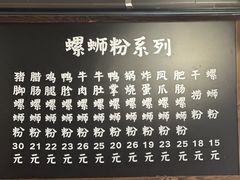 螺蛳粉系列
猪脚螺蛳粉 30元
腊肠螺蛳粉 21元
鸡腿螺蛳粉 22元
鸭胗螺蛳粉 23元
牛肉螺蛳粉 25元
牛肚螺蛳粉 25元
鸭掌螺蛳粉 20元
锅烧螺蛳粉 26元
炸蛋螺蛳粉 19元
凤爪螺蛳粉 23元
肥肠螺蛳粉 25元
干捞粉 18元
螺蛳粉 15元